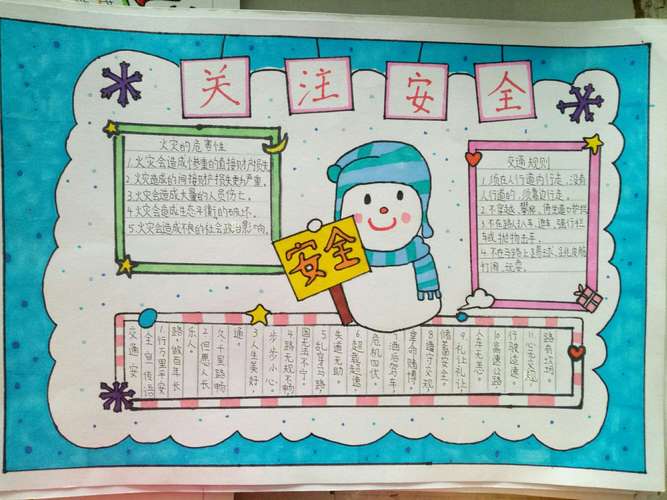 关注安全
火灾的危害性
1.火灾会造成惨重的直接财产损失
2.火灾造成的间接财产损失更为严重.
3.火灾会造成大量的人员伤亡.
4.火灾会造成生态平衡的破坏.
5.火灾会造成不良的社会政治影响.
安全
交通规则
1.须在人行道内行走,没有
人行道的,须靠边行走.
2.不穿越、攀爬、倚坐道口护栏
3.不在路上扒车、追车、强行拦
车或抛物击车.
4.不在马路上踢球、
打闹、玩耍.
交通安
全宣传语
1.行万里平安
路,做百年长
乐人。
2.但愿人长
久,千里路畅
通。
3.人生美好,
步步小心。
4.路无规不畅,
国无法不宁。
5.乱穿马路,
失道无助。
6.超载超速,
危机四伏。
7.酒后驾车,
拿命赌博。
8.遵守交规,
储蓄安全。
9.礼让礼让,
人车无恙。
10.高速公路,
行驶适速。
11.心无交规,
路有坎坷。